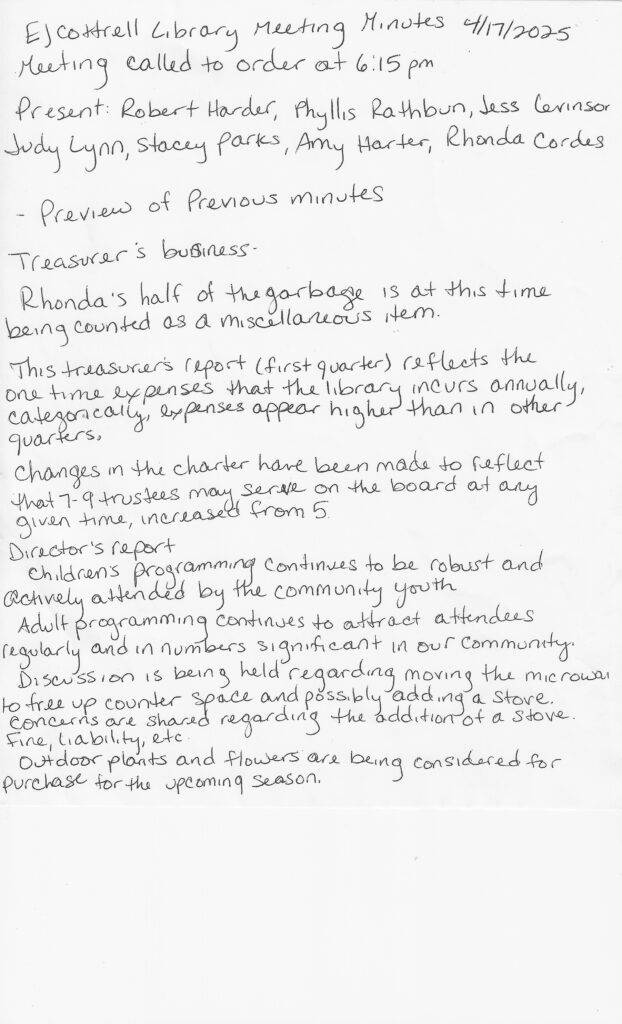 EJ Cottrell Library Meeting Minutes 4/17/2025
Meeting called to order at 6:15 pm
Present: Robert Harder, Phyllis Rathbun, Jess Levinsor
Judy Lynn, Stacey Parks, Amy Harter, Rhonda Cordes
- Preview of Previous minutes
Treasurer's business-
Rhonda's half of the garbage is at this time
being counted as a miscellaneous item.
This treasurer's report (first quarter) reflects the
one time expenses that the library incurs annually,
categorically, expenses appear higher than in other
quarters.
Changes in the charter have been made to reflect
that 7-9 trustees may serve on the board at any
given time, increased from 5
Director's report
Children's programming continues to be robust and
actively attended by the community youth
Adult programming continues to attract attendees
regularly and in numbers significant in our community.
Discussion is being held regarding moving the microwa
to free up counter space and possibly adding a stove.
Concerns are shared regarding the addition of a stove.
Fire, liability, etc.
Outdoor plants and flowers are being considered for
purchase for the upcoming season.